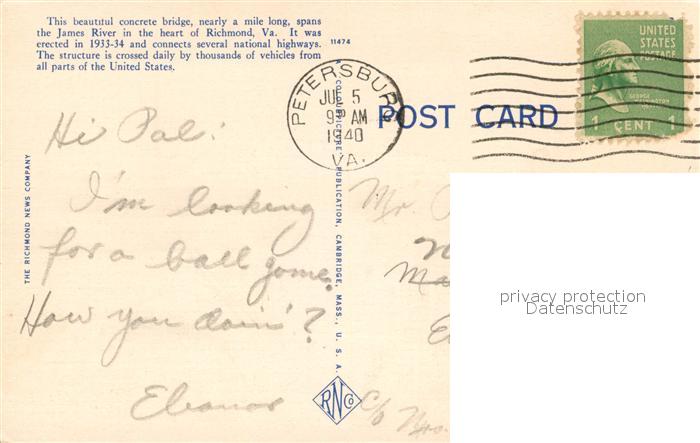 This beautiful concrete bridge, nearly a mile long, spans
the James River in the heart of Richmond, Va. It was
erected in 1933-34 and connects several national highways.
The structure is crossed daily by thousands of vehicles from
all parts of the United States.
11474
THE RICHMOND NEWS COMPANY
Hi Pal:
I'm looking
for a ball game.
How you doin'?
Eleanor
A COLOURPICTURE PUBLICATION, CAMBRIDGE, MASS., U. S. A.
RNCo
PETERSBURG
5
9 AM
1940
VA.
POST CARD
UNITED
STATES
POSTAGE
GEORGE
WASHINGTON
1 CENT 1
Mr.
c/o Mrs.
privacy protection
Datenschutz